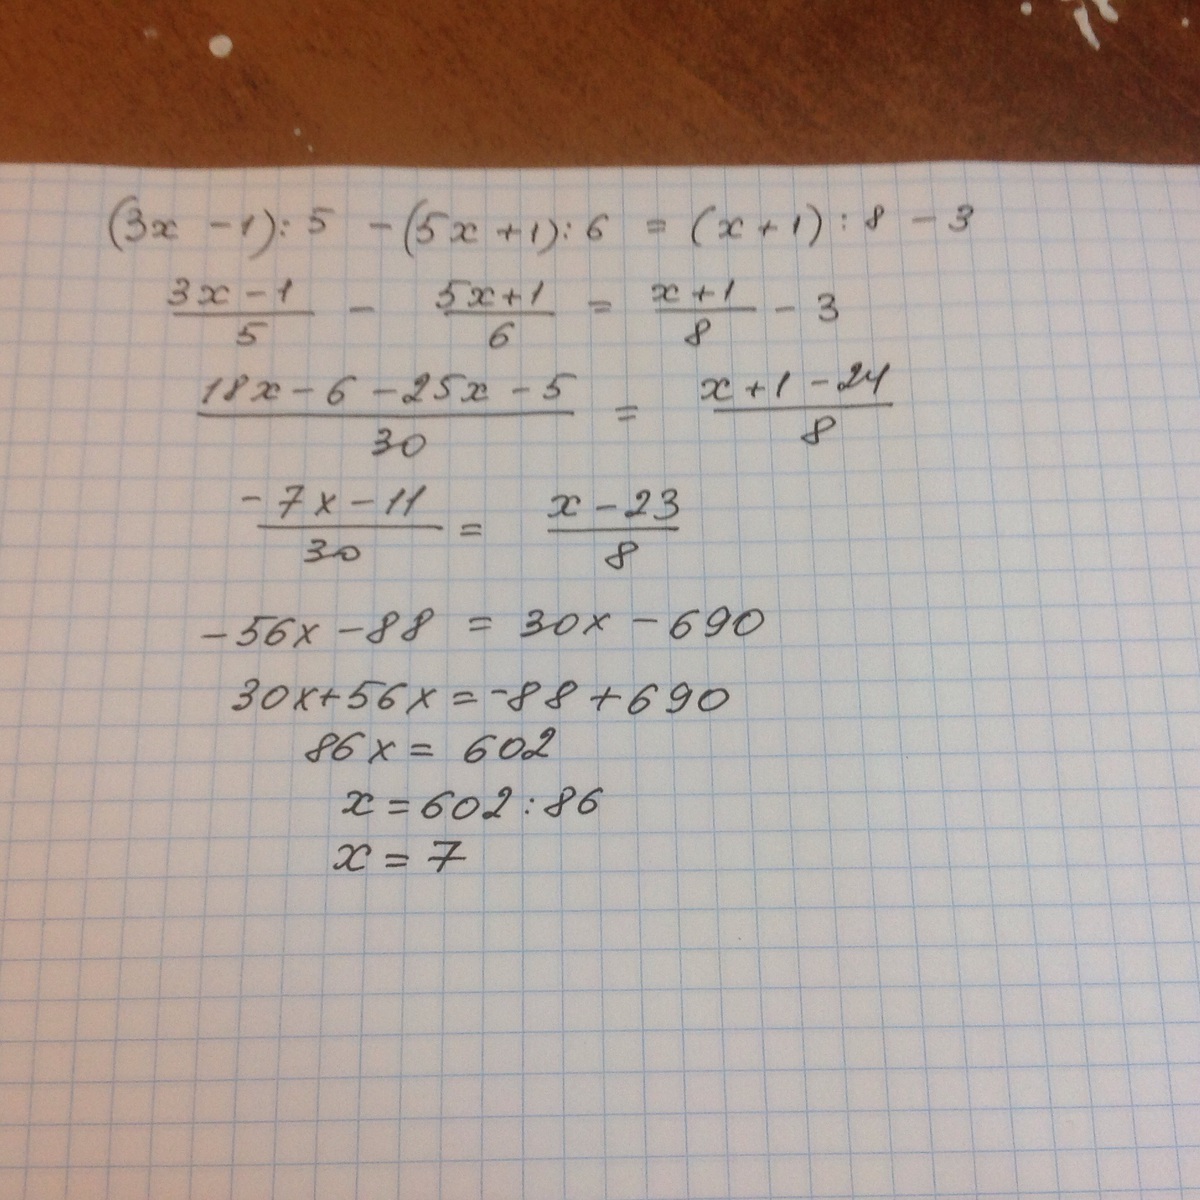 (3x - 1) : 5 - (5x + 1) : 6 = (x + 1) : 8 - 3
\frac{3x - 1}{5} - \frac{5x + 1}{6} = \frac{x + 1}{8} - 3
\frac{18x - 6 - 25x - 5}{30} = \frac{x + 1 - 24}{8}
\frac{-7x - 11}{30} = \frac{x - 23}{8}
-56x - 88 = 30x - 690
30x + 56x = -88 + 690
86x = 602
x = 602 : 86
x = 7